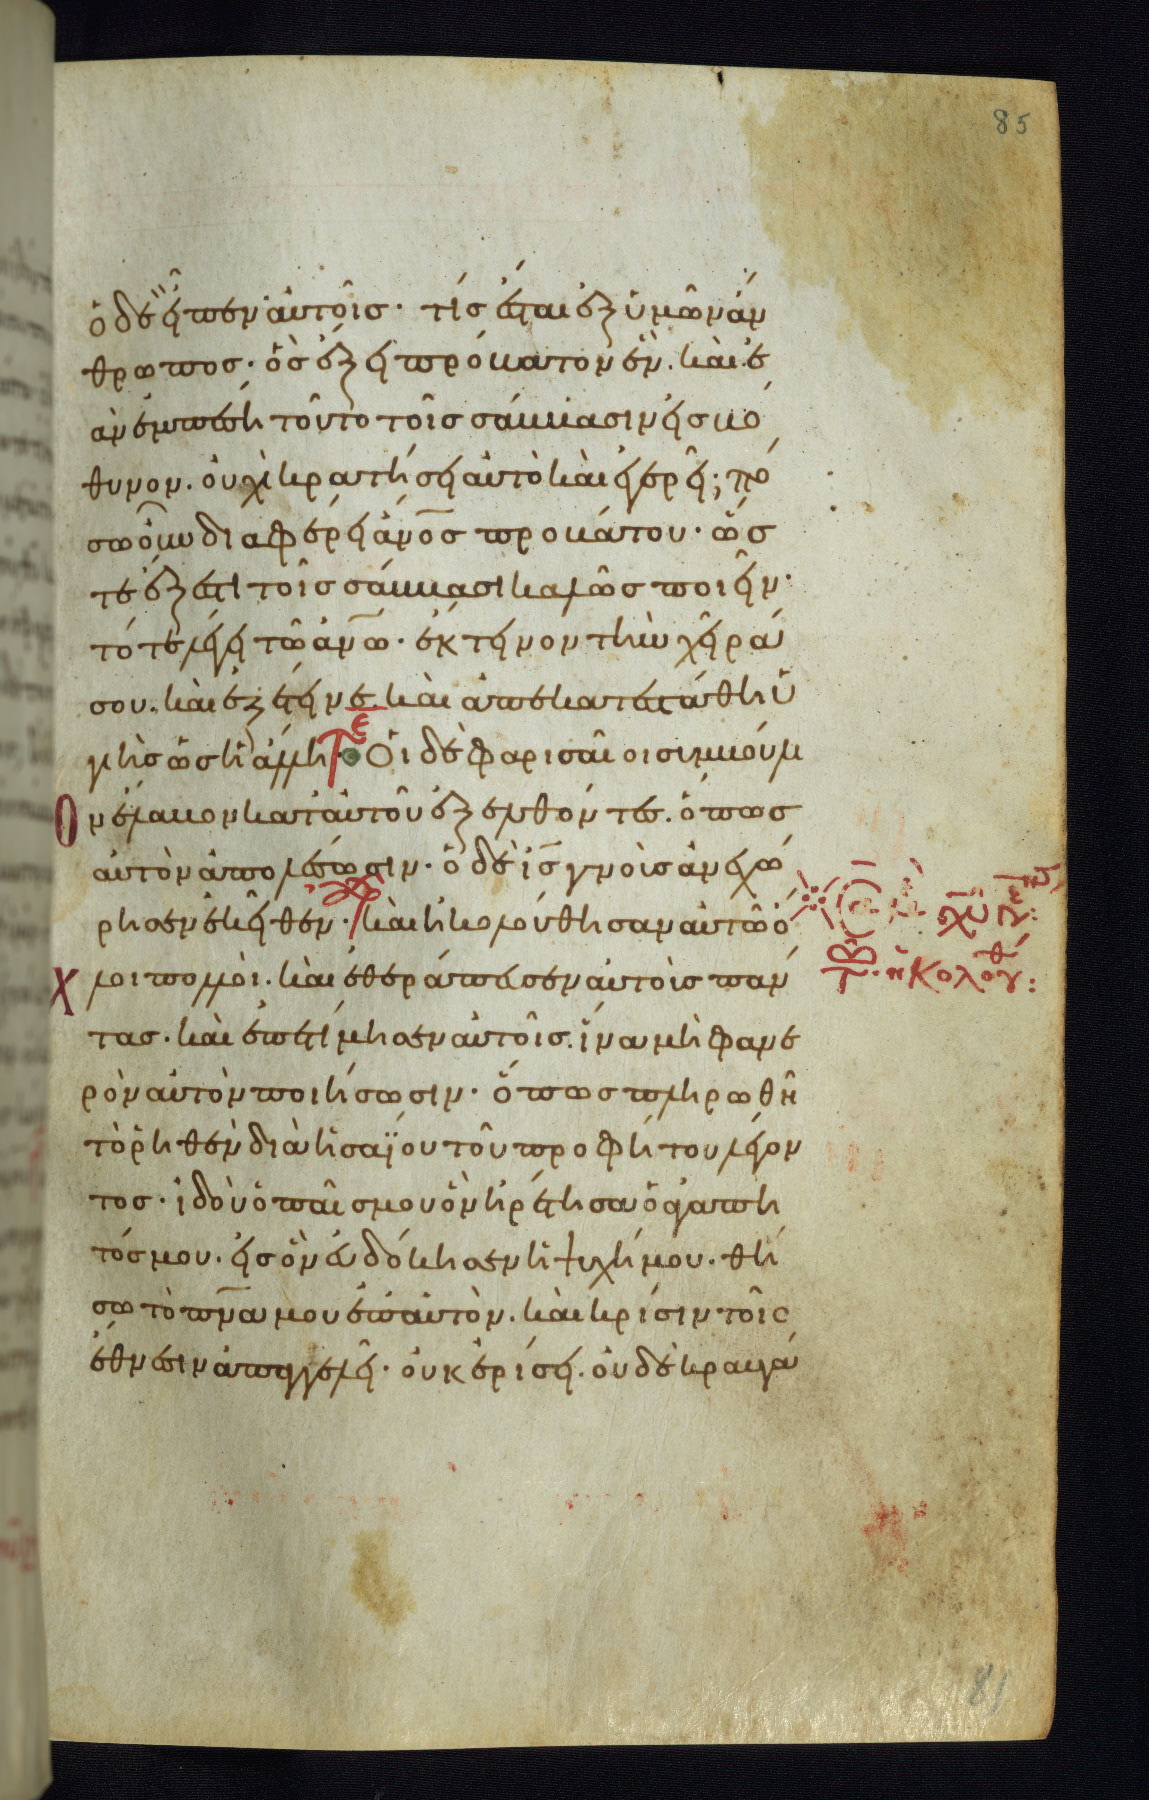 85
ὁ δὲ εἶπεν αὐτοῖς· τίς ἔσται ἐξ ὑμῶν ἄν
θρωπος· ὃς ἕξει πρόβατον ἕν. καὶ ἐ
ὰν ἐμπέση τοῦτο τοῖς σάββασιν εἰς βό
θυνον. οὐχὶ κρατήσει αὐτὸ καὶ ἐγερεῖ; πό
σω οὖν διαφέρει ἄνος προβάτου· ὥς
τε ἔξεστι τοῖς σάββασι καλῶς ποιεῖν·
τότε λέγει τῶ ἀνω· ἔκτεινον τὴν χεῖρά
σου. καὶ ἐξέτεινε. καὶ ἀπεκατεστάθη ὑ
γιὴς ὡς ἡ ἄλλη· Οἱ δὲ φαρισαῖοι συμβούλι
ον ἔλαβον κατ αὐτοῦ ἐξελθόντες. ὅπως
αὐτὸν ἀπολέσωσιν· ὁ δὲ ις γνοὺς ἀνεχώ
ρησεν ἐκεῖθεν· καὶ ἠκολούθησαν αὐτῶ ὄ
χλοι πολλοί. καὶ ἐθεράπευσεν αὐτοὺς πάν
τας. καὶ ἐπετίμησεν αὐτοῖς. ἵνα μὴ φανε
ρὸν αὐτὸν ποιήσωσιν· ὅπως πληρωθῆ
τὸ ῥηθὲν διὰ ἡσαΐου τοῦ προφήτου λέγον
τος· ἰδοὺ ὁ παῖς μου ὃν ἡρέτησα ὁ ἀγαπη
τός μου. εἰς ὃν εὐδόκησεν ἡ ψυχή μου· θή
σω τὸ πνα μου ἐπ αὐτὸν. καὶ κρίσιν τοῖς
ἔθνεσιν ἀπαγγελεῖ· οὐκ ἐρίσει. οὐδὲ κραυγά
81